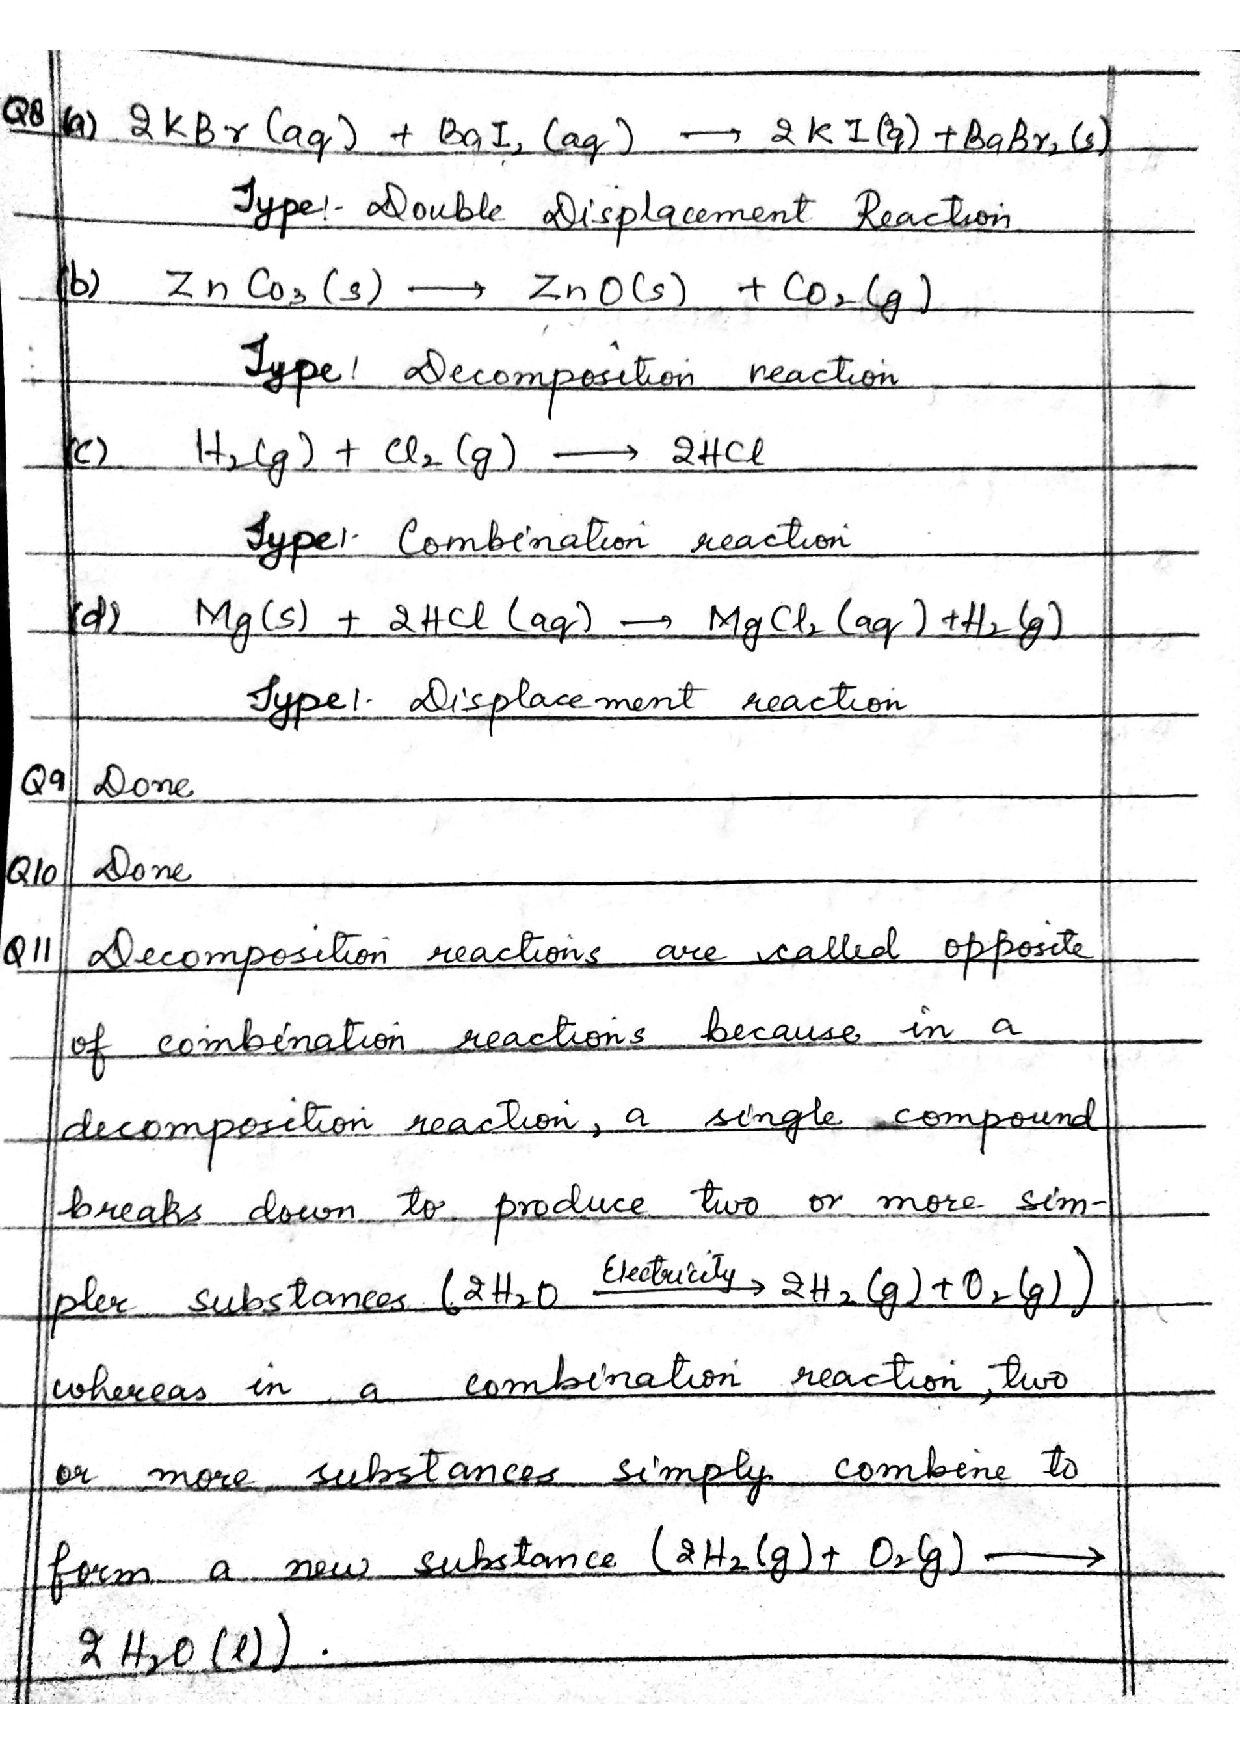 Q8 (a) 2KBr (aq) + BaI₂ (aq) → 2KI(aq) + BaBr₂ (s)
Type:- Double Displacement Reaction
(b) ZnCo₃ (s) → ZnO(s) + CO₂ (g)
Type: Decomposition reaction
(c) H₂(g) + Cl₂ (g) → 2HCl
Type:- Combination reaction
(d) Mg(s) + 2HCl (aq) → MgCl₂ (aq) + H₂ (g)
Type:- Displacement reaction
Q9 Done
Q10 Done
Q11 Decomposition reactions are called opposite
of combination reactions because in a
decomposition reaction, a single compound
breaks down to produce two or more sim-
pler substances (2H₂O Electricity→ 2H₂ (g) + O₂ (g))
whereas in a combination reaction, two
or more substances simply combine to
form a new substance (2H₂ (g) + O₂ (g) →
2H₂O (l)).